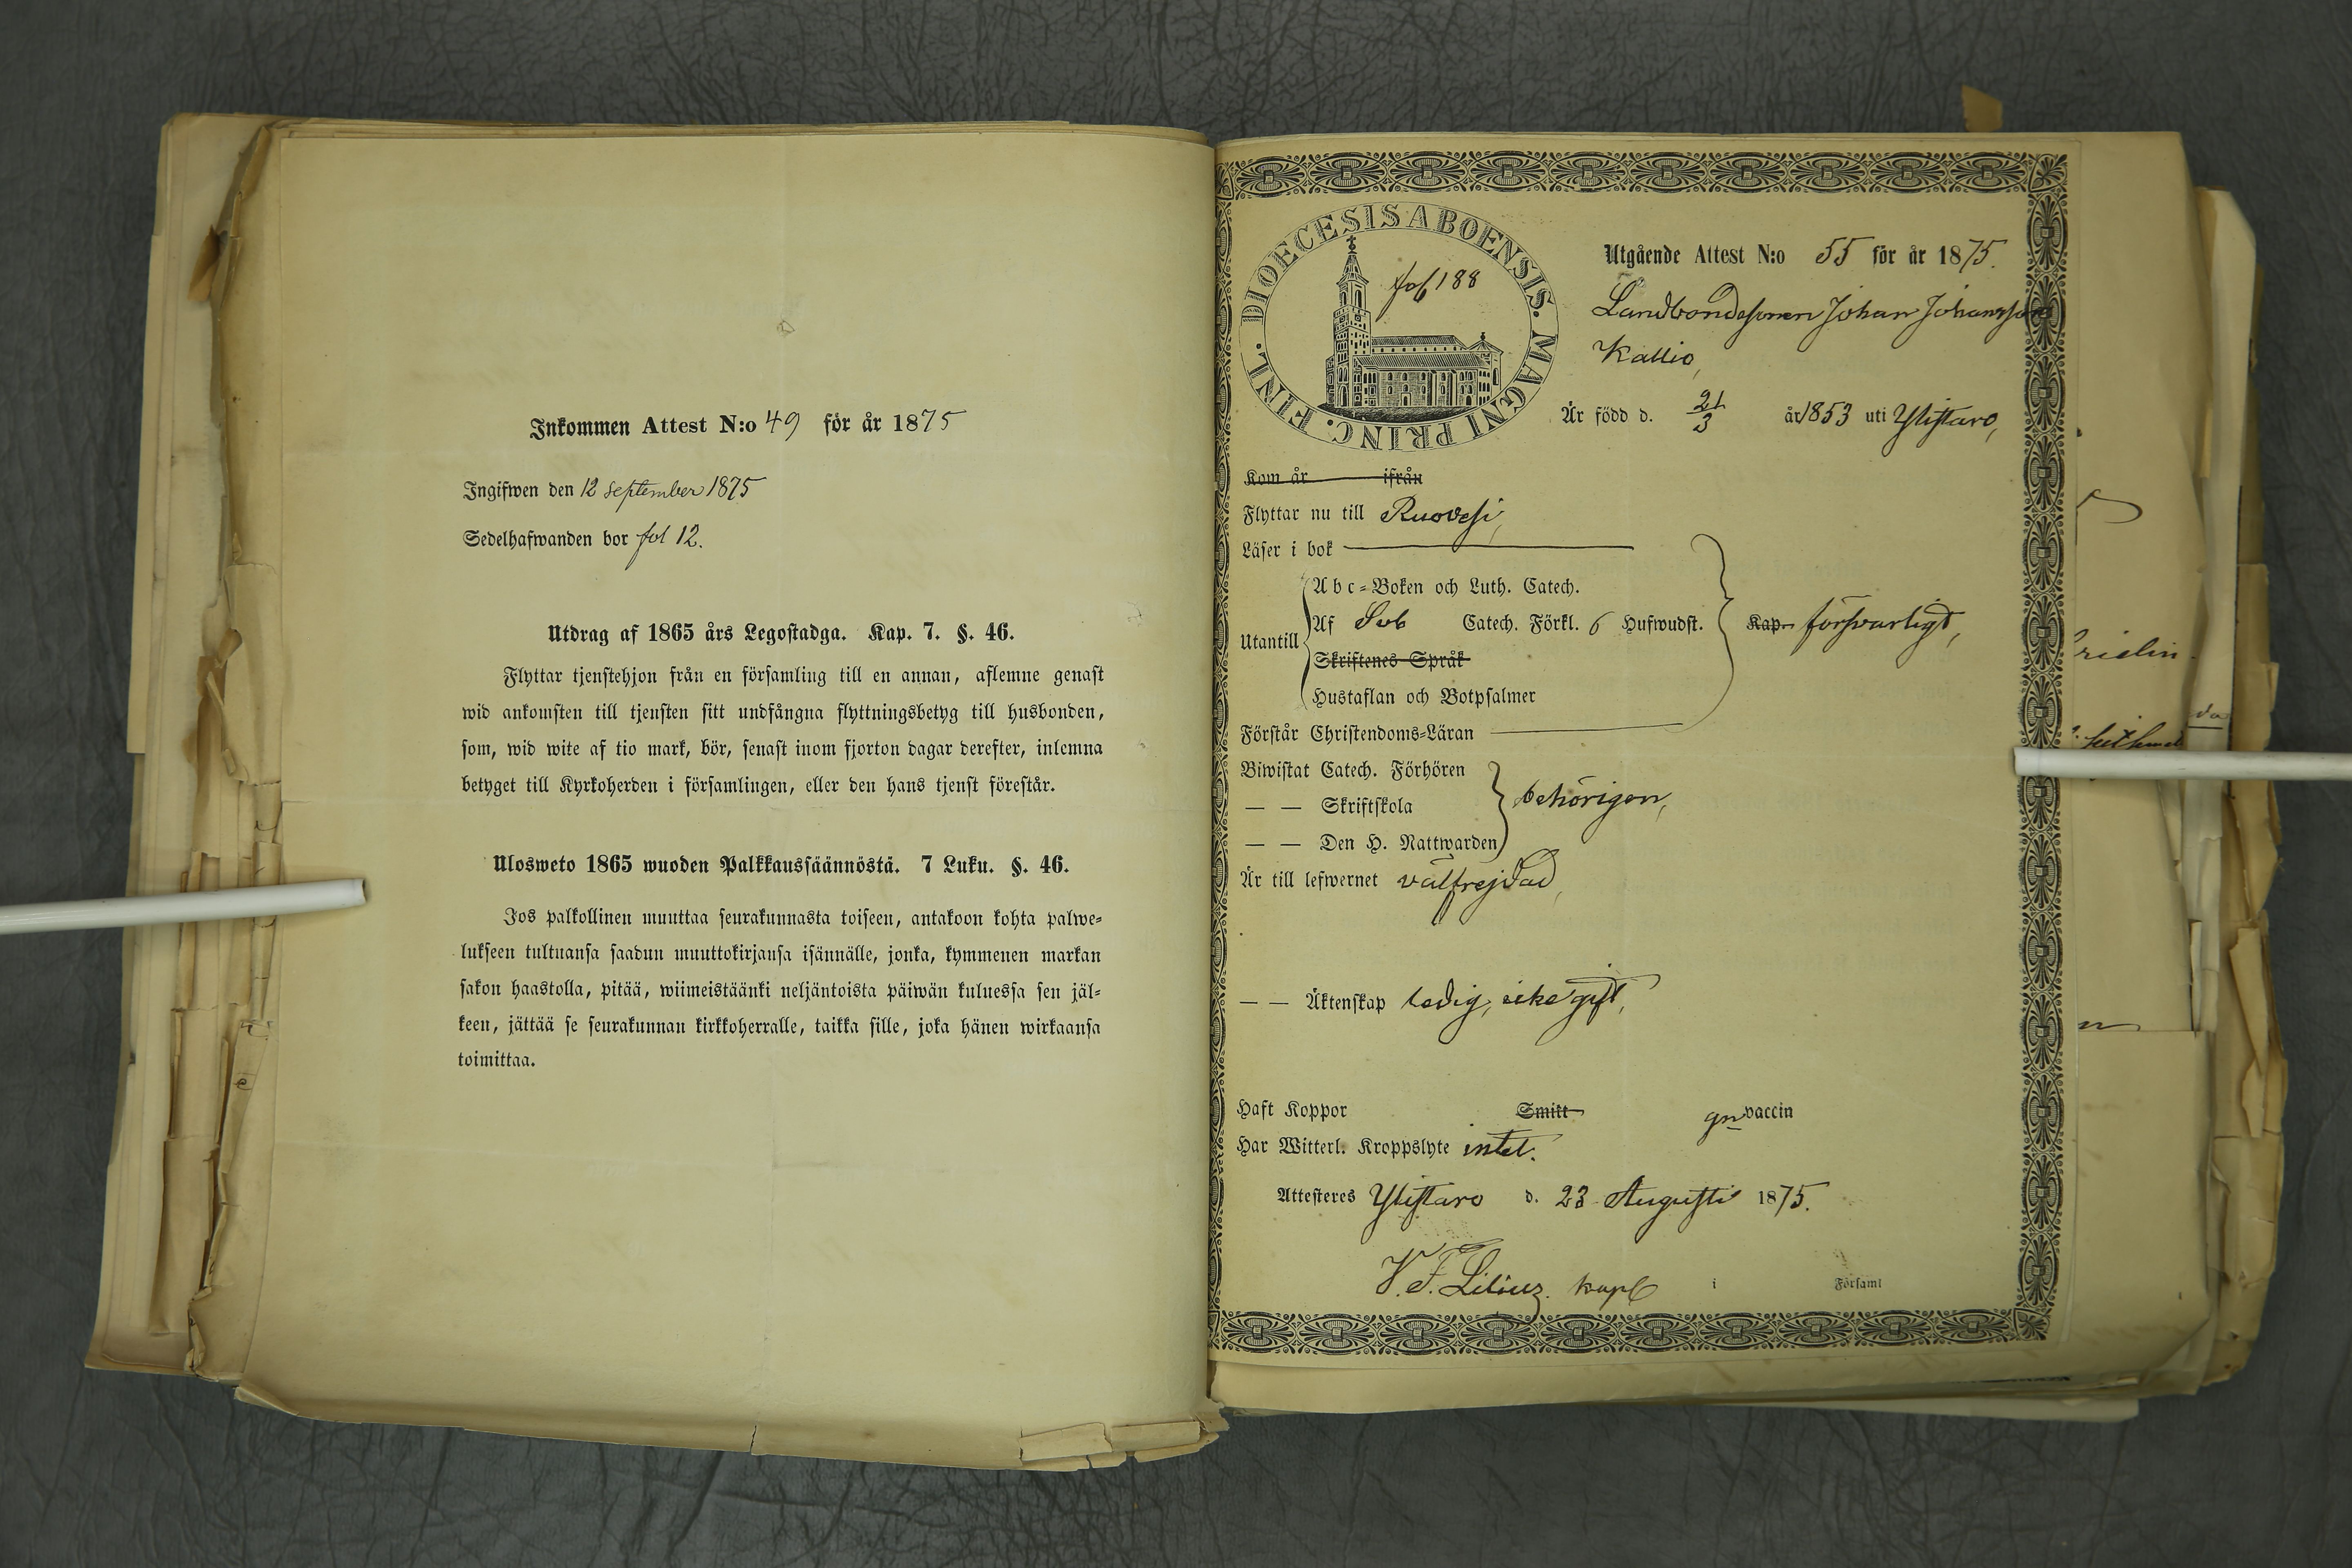 Inkommen Attest N:o 49 för år 1875
Ingifwen den 12 september 1875
Sedelhafwanden bor fol 12.
Utdrag af 1865 års Legostadga. Kap. 7. §. 46.
Flyttar tjenstehjon från en församling till en annan, aflemne genast
wid ankomsten till tjensten sitt undfångna flyttningsbetyg till husbonden,
som, wid wite af tio mark, bör, senast inom fjorton dagar derefter, inlemna
betyget till Kyrkoherden i församlingen, eller den hans tjenst förestår.
Ulosweto 1865 wuoden Palkkaussäännöstä. 7 Luku. §. 46.
Jos palkollinen muuttaa seurakunnasta toiseen, antakoon kohta palwe-
lukseen tultuansa saadun muuttokirjansa isännälle, jonka, kymmenen markan
sakon haastolla, pitää, wiimeistäänki neljäntoista päiwän kuluessa sen jäl-
keen, jättää se seurakunnan kirkkoherralle, taikka sille, joka hänen wirkaansa
toimittaa.
DIOECESIS ABOENSIS. MAGNI PRINC. FINL.
fol 188
Utgående Attest N:o 55 för år 1875.
Landbondesonen Johan Johansson
Kallio,
Är född d. 21/3 år 1853 uti Ylistaro,
Kom år ifrån
Flyttar nu till Ruovesi,
Läser i bok
Utantill
Abc-Boken och Luth. Catech.
Af Sveb Catech. Förkl. 6 Hufwudst.
Skriftenes Språk
Hustaflan och Botpsalmer
Kap. försvarligt,
Förstår Christendoms-Läran
Biwistat Catech. Förhören
— — Skriftskola behörigen,
— — Den H. Nattwarden
Är till lefwernet välfrejdad,
— — Äktenskap ledig, icke gift,
Haft Koppor Smitt gn vaccin
Har Witterl. Kroppslyte intet.
Attesteres Ylistaro d. 23 Augusti 1875.
V. F. Lilius. kapl i Församl